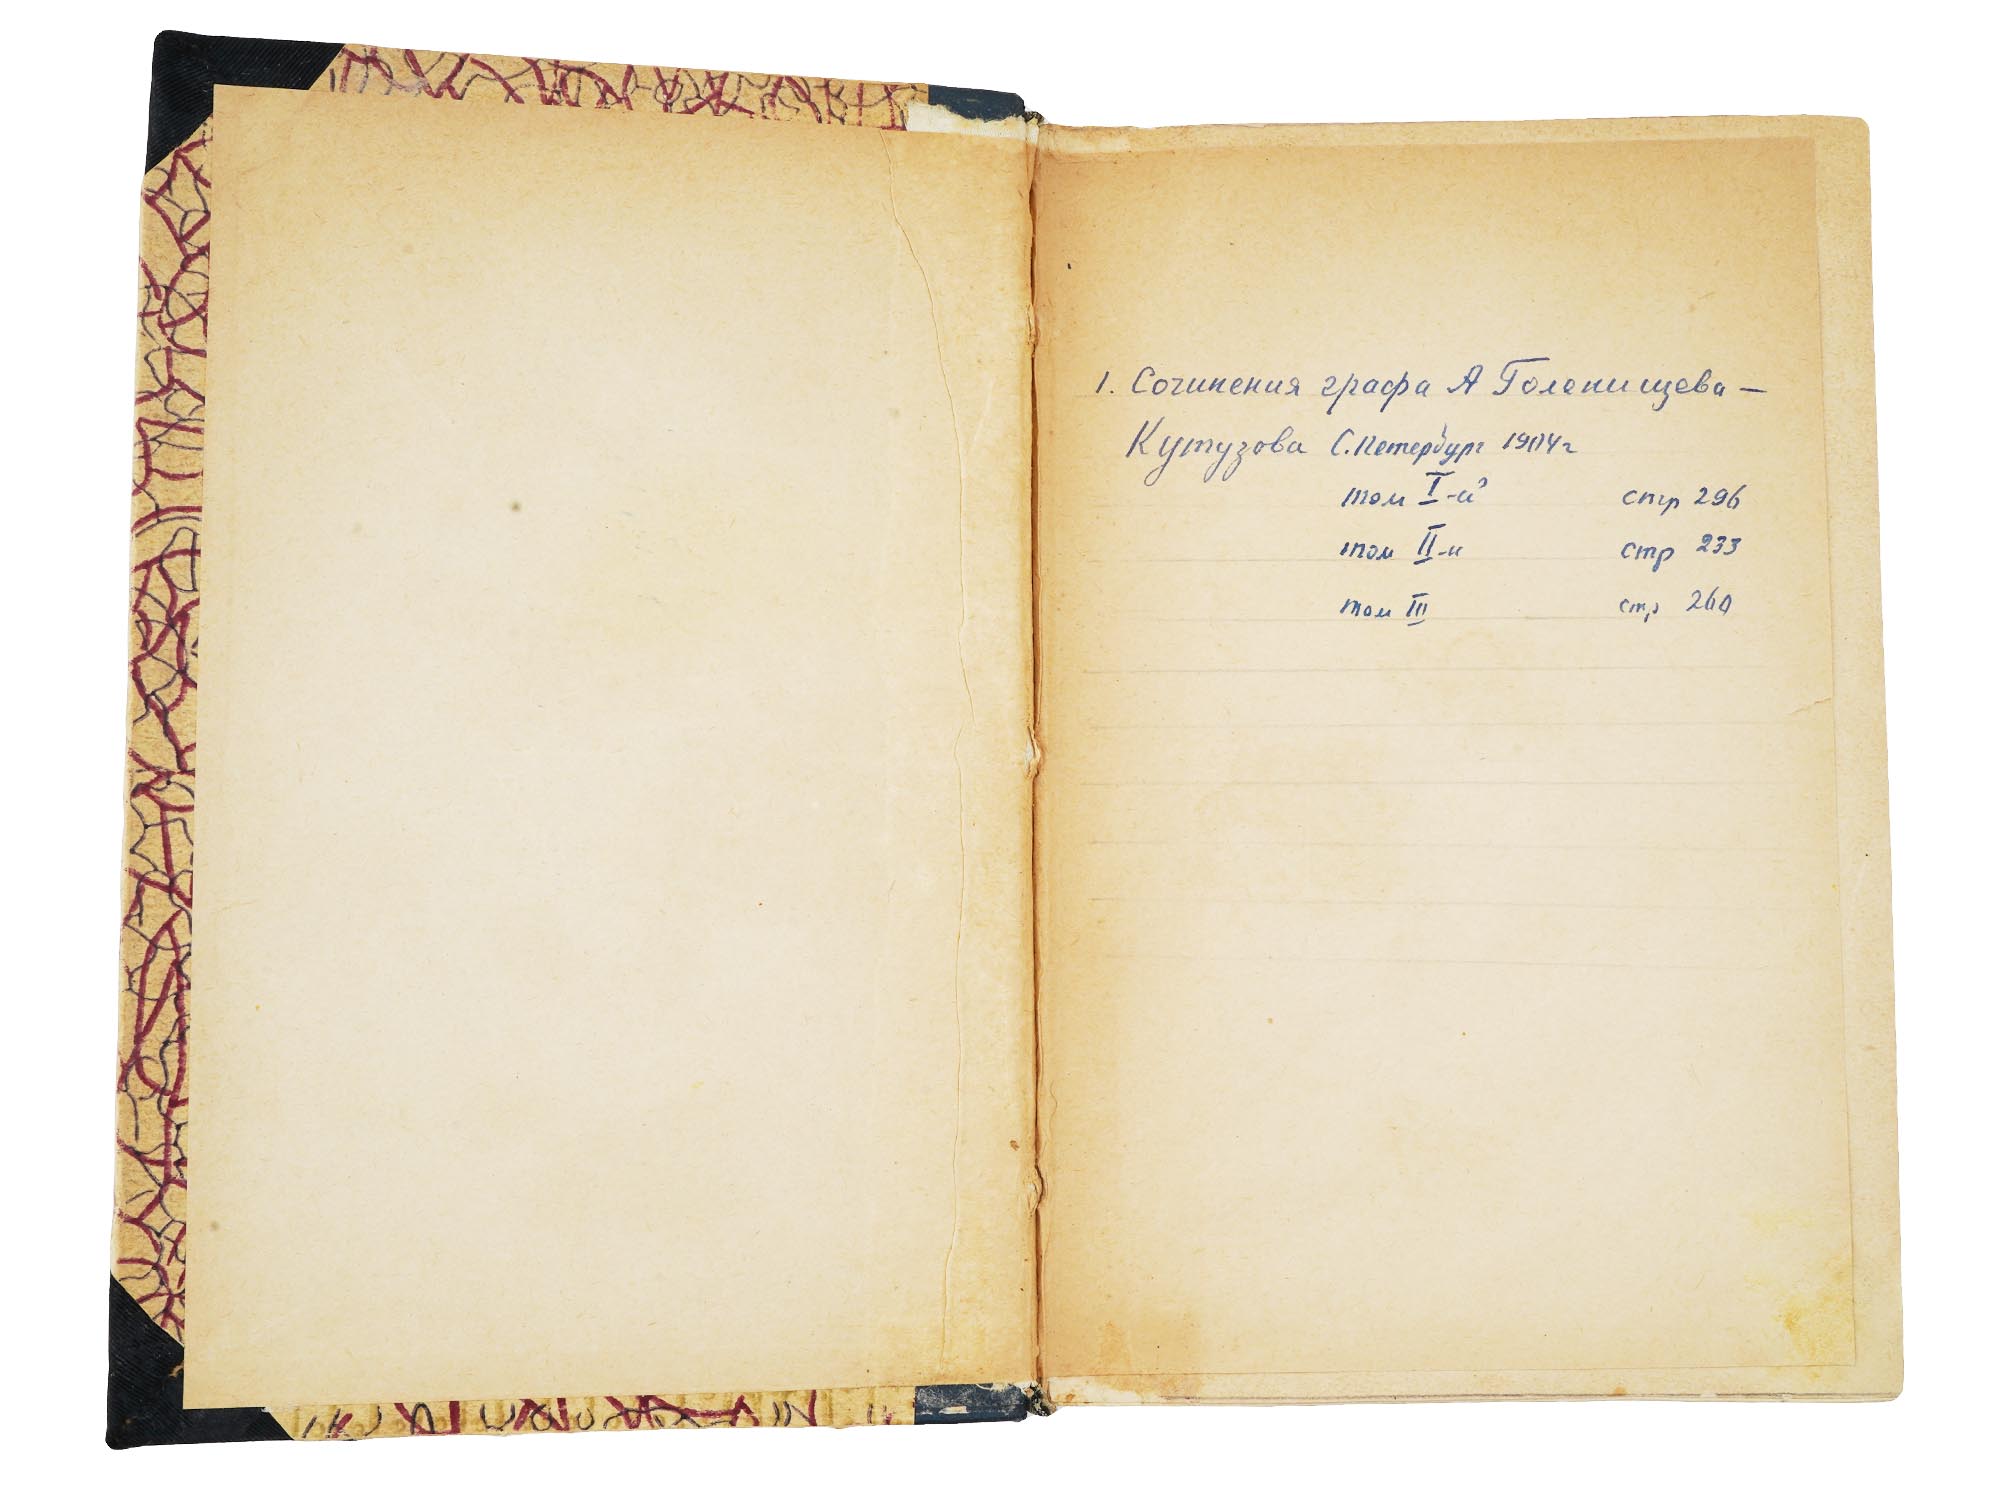 1. Сочинения графа А Голенищева –
Кутузова С. Петербург 1904г
том I-й стр 296
том II-и стр 233
том III стр 260